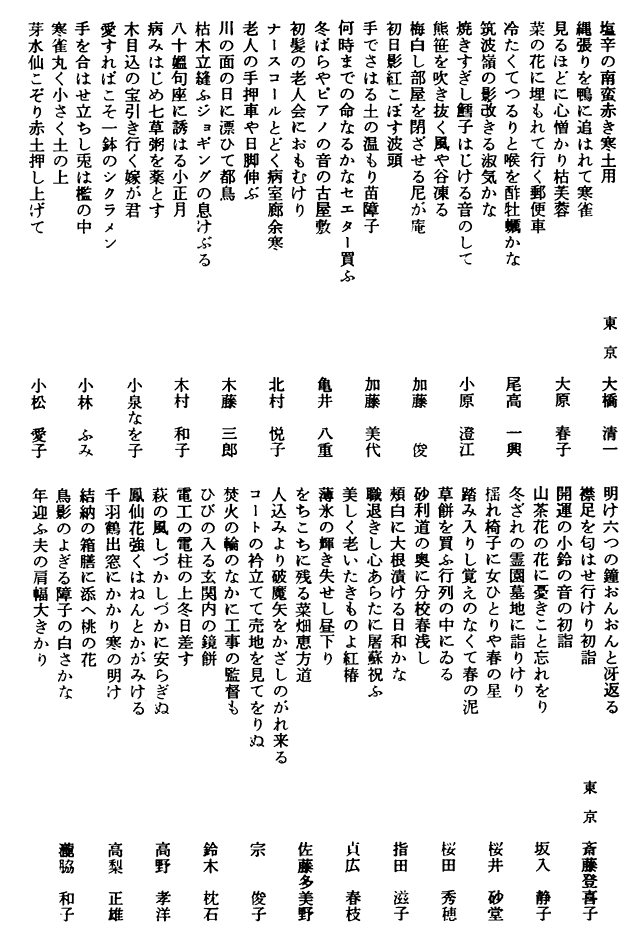 塩辛の南蛮赤き寒土用
縄張りを鴨に追はれて寒雀
東京 大橋 清一
見るほどに心憎かり枯芙蓉
菜の花に埋もれて行く郵便車
大原 春子
冷たくてつるりと喉を酢牡蠣かな
筑波嶺の影改きる淑気かな
尾高 一興
焼きすぎし鱈子はじける音のして
熊笹を吹き抜く風や谷凍る
小原 澄江
梅白し部屋を閉ざせる尼が庵
初日影紅こぼす波頭
加藤 俊
手でさはる土の温もり苗障子
何時までの命なるかなセエター買ふ
加藤 美代
冬ばらやピアノの音の古屋敷
初髪の老人会におもむけり
亀井 八重
ナースコールとどく病室廊余寒
老人の手押車や日脚伸ぶ
北村 悦子
川の面の日に漂ひて都鳥
枯木立縫ふジョギングの息けぶる
木藤 三郎
八十媼句座に誘はる小正月
病みはじめ七草粥を薬とす
木村 和子
木目込の宝引き行く嫁が君
愛すればこそ一鉢のシクラメン
小泉なを子
手を合はせ立ちし兎は檻の中
寒雀丸く小さく土の上
小林 ふみ
芽水仙こぞり赤土押し上げて
小松 愛子
明け六つの鐘おんおんと冴返る
襟足を匂はせ行けり初詣
東京 斎藤登喜子
開運の小鈴の音の初詣
山茶花の花に憂きこと忘れをり
坂入 静子
冬ざれの霊園墓地に詣りけり
揺れ椅子に女ひとりや春の星
桜井 砂堂
踏み入りし覚えのなくて春の泥
草餅を買ふ行列の中にゐる
桜田 秀穂
砂利道の奥に分校春浅し
頰白に大根漬ける日和かな
指田 滋子
職退きし心あらたに屠蘇祝ふ
美しく老いたきものよ紅椿
貞広 春枝
薄氷の輝き失せし昼下り
をちこちに残る菜畑恵方道
佐藤多美野
人込みより破魔矢をかざしのがれ来る
コートの衿立てて売地を見てをりぬ
宗 俊子
焚火の輪のなかに工事の監督も
ひびの入る玄関内の鏡餅
鈴木 枕石
電工の電柱の上冬日差す
萩の風しづかしづかに安らぎぬ
高野 孝洋
鳳仙花強くはねんとかがみける
千羽鶴出窓にかかり寒の明け
高梨 正雄
結納の箱膳に添へ桃の花
鳥影のよぎる障子の白さかな
瀧脇 和子
年迎ふ夫の肩幅大きかり